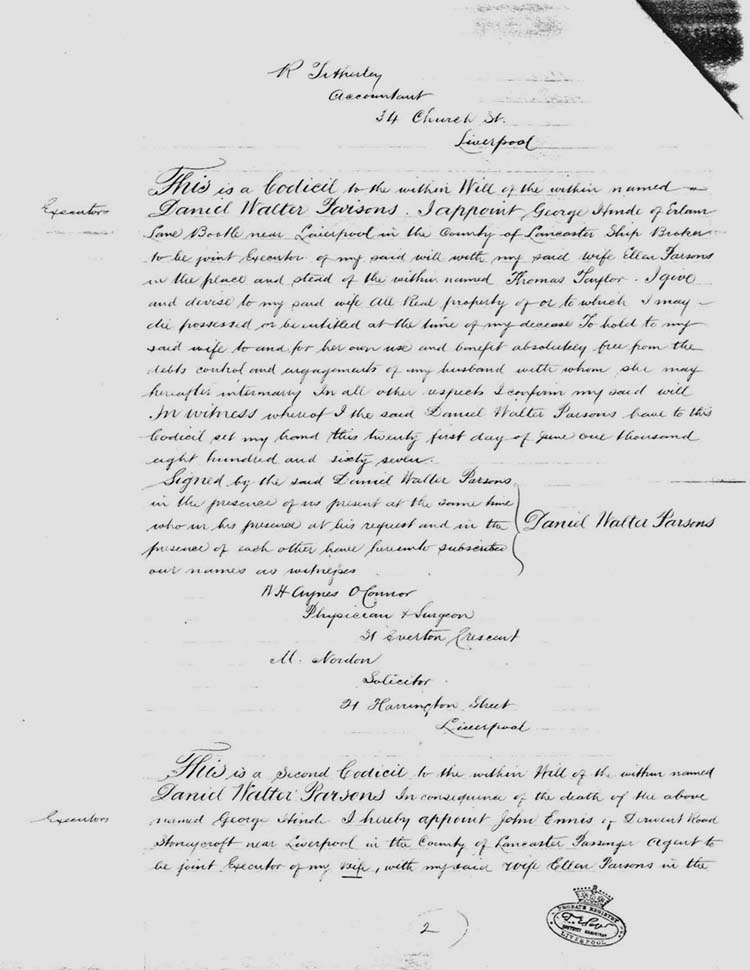 R Titherley
Accountant
34 Church St.
Liverpool
This is a Codicil to the within Will of the within named
Executors
Daniel Walter Parsons. I appoint George Hinde of
Lane Bootle near Liverpool in the County of Lancaster Ship Broker
to be joint Executor of my said will with my said wife Ellen Parsons
in the place and stead of the within named Thomas Taylor. I give
and devise to my said wife All Real property of or to which I may
die possessed or be entitled at the time of my decease To hold to my
said wife to and for her own use and benefit absolutely free from the
debts control and engagements of my husband with whom she may
hereafter intermarry In all other respects I confirm my said will
In witness whereof I the said Daniel Walter Parsons have to this
Codicil set my hand this twenty first day of June one thousand
eight hundred and sixty seven.
Signed by the said Daniel Walter Parsons
in the presence of us present at the same time
who in his presence at his request and in the
presence of each other have hereunto subscribed
our names as witnesses
Daniel Walter Parsons
O'Connor
Physician & Surgeon
Everton Crescent
M. Nordon
Solicitor
Harrington Street
Liverpool
This is a Second Codicil to the within Will of the within named
Daniel Walter Parsons In consequence of the death of the above
Executors
named George Hinde I hereby appoint John Ennis of Derwent Road
Stoneycroft near Liverpool in the County of Lancaster Passenger Agent to
be joint Executor of my Wife, with my said Wife Ellen Parsons in the
2
PROBATE REGISTRY
DISTRICT REGISTRAR
LIVERPOOL